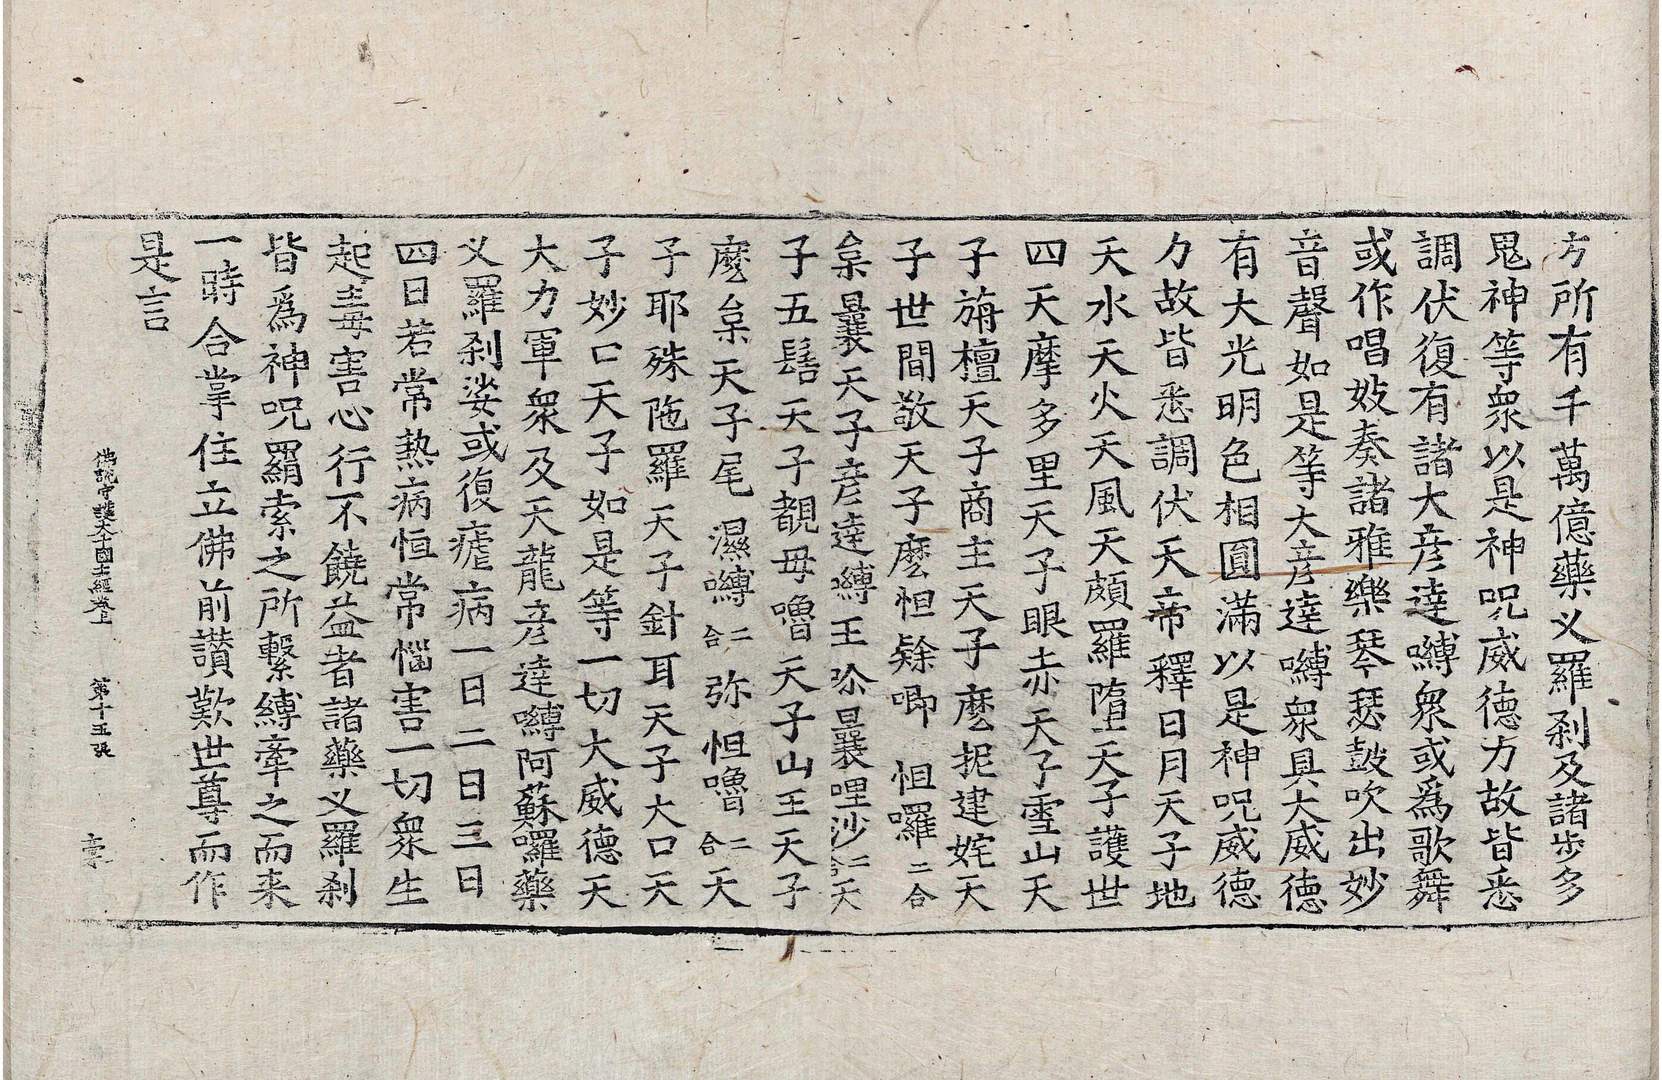 方所有千萬億藥义羅刹及諸步多
鬼神等衆以是神呪威德力故皆悉
調伏復有諸大彦達嚩衆或爲歌舞
或作唱妓奏諸雅樂琴瑟鼓吹出妙
音聲如是等大彦達嚩衆具大威德
有大光明色相圓滿以是神呪威德
力故皆悉調伏天帝釋日月天子地
天水天火天風天頗羅墮天子護世
四天摩多里天子眼赤天子雪山天
子旃檀天子商主天子麽抳建姹天
子世間敬天子麽怛㘑唧怛囉二合
枲曩天子彦達嚩王 曩哩沙二合天
子五髻天子覩毋嚕天子山王天子
麽枲天子尾濕嚩二合弥怛嚕二合天
子耶殊陁羅天子針耳天子大口天
子妙口天子如是等一切大威德天
大力軍衆及天龍彦達嚩阿蘇囉藥
义羅刹娑或復瘧病一日二日三日
四日若常熱病恒常惱害一切衆生
起毒害心行不饒益者諸藥义羅刹
皆爲神呪羂索之所繫縛牽之而来
一時合掌住立佛前讃歎世尊而作
是言
佛說守護大千國土經卷上 第十五張